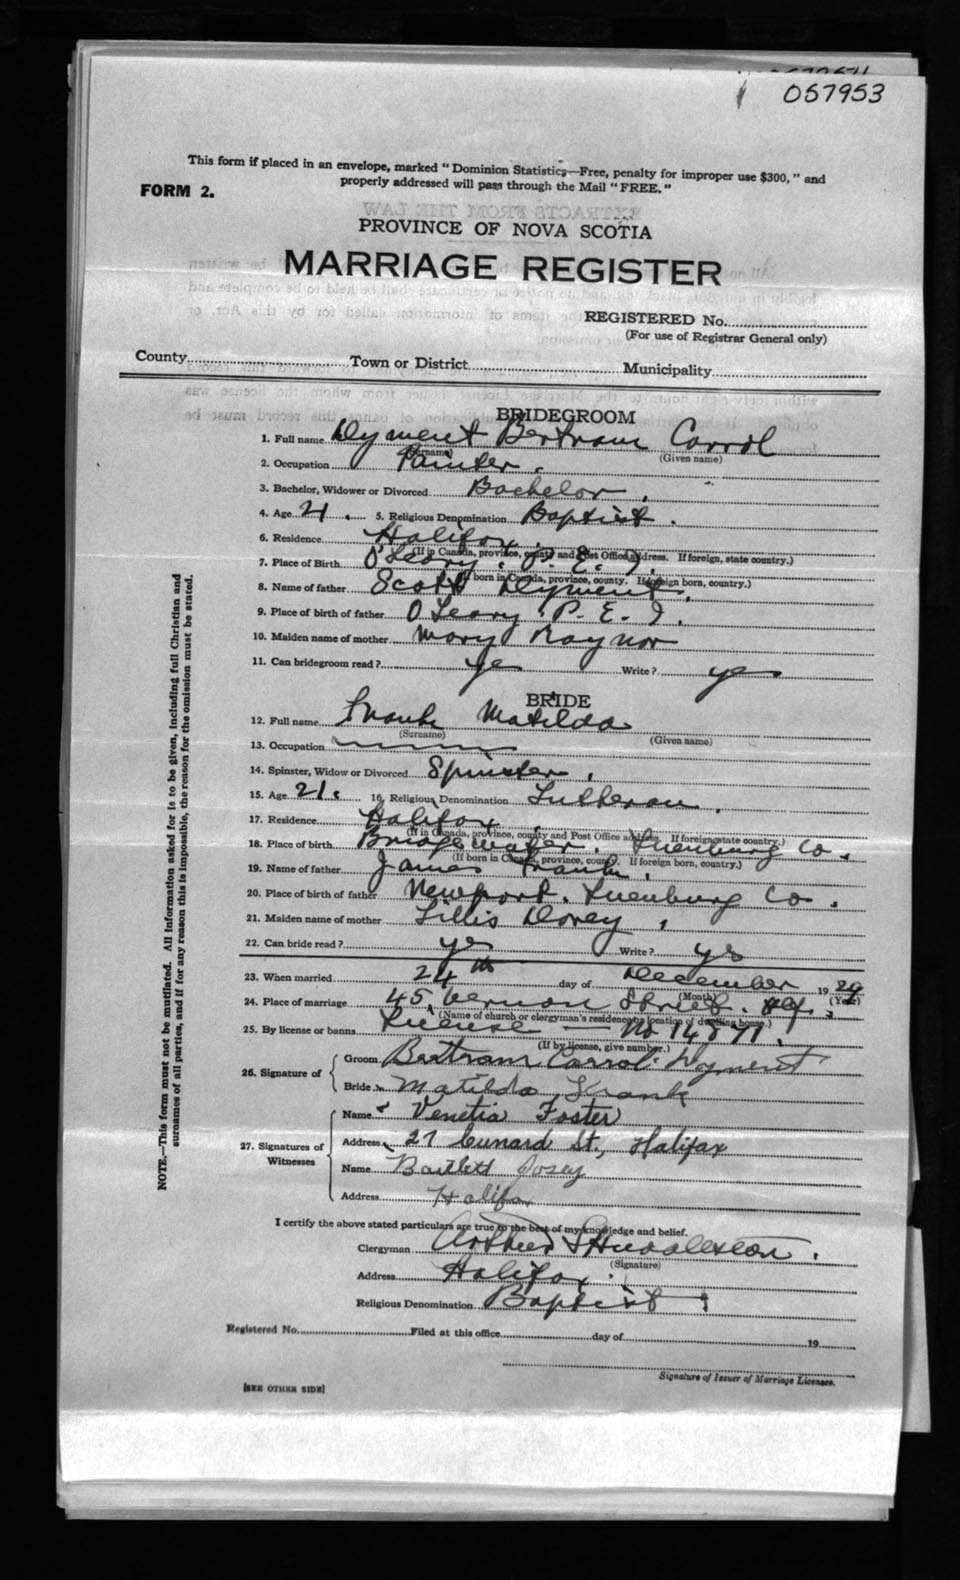 057953
This form if placed in an envelope, marked "Dominion Statistics—Free, penalty for improper use $300," and
properly addressed will pass through the Mail "FREE."
FORM 2.
EXTRACTS FROM THE LAW
PROVINCE OF NOVA SCOTIA
MARRIAGE REGISTER
REGISTERED No.
(For use of Registrar General only)
County Town or District Municipality
BRIDEGROOM
1. Full name Dyment Bertram Carrol
(Surname) (Given name)
2. Occupation Painter.
3. Bachelor, Widower or Divorced Bachelor.
4. Age 21. 5. Religious Denomination Baptist.
6. Residence Halifax.
(If in Canada, province, county and Post Office address. If foreign, state country.)
7. Place of Birth O'Leary. P. E. I.
(If born in Canada, province, county. If foreign born, country.)
8. Name of father Scott Dyment.
9. Place of birth of father O Leary P. E. I.
10. Maiden name of mother Mary Raynor
11. Can bridegroom read? yes Write? yes
BRIDE
12. Full name Frank Matilda
(Surname) (Given name)
13. Occupation
14. Spinster, Widow or Divorced Spinster.
15. Age 21. 16. Religious Denomination Lutheran.
17. Residence Halifax.
(If in Canada, province, county and Post Office address. If foreign state country.)
18. Place of birth Bridgewater. Lunenburg Co.
(If born in Canada, province, county. If foreign born, country.)
19. Name of father James Frank.
20. Place of birth of father Newport. Lunenburg Co.
21. Maiden name of mother Lillis Dorey,
22. Can bride read? yes Write? yes
23. When married 24th day of December 1929
(Month) (Year)
24. Place of marriage 45, Vernon Street. Hfx.
(Name of church or clergyman's residence or location of dwelling house.)
25. By license or banns License — No 14871.
(If by license, give number.)
26. Signature of
Groom Bertram Carrol Dyment
Bride Matilda Frank
27. Signatures of Witnesses
Name Venetia Foster
Address 27 Cunard St., Halifax
Name Bartlett Josey
Address Halifax
I certify the above stated particulars are true to the best of my knowledge and belief.
Clergyman Arthur Huddleston.
(Signature)
Address Halifax.
Religious Denomination Baptist
Registered No. Filed at this office day of 19
Signature of Issuer of Marriage Licenses.
[SEE OTHER SIDE]
NOTE.—This form must not be mutilated. All information asked for is to be given, including full Christian and
surnames of all parties, and if for any reason this is impossible, the reason for the omission must be stated.